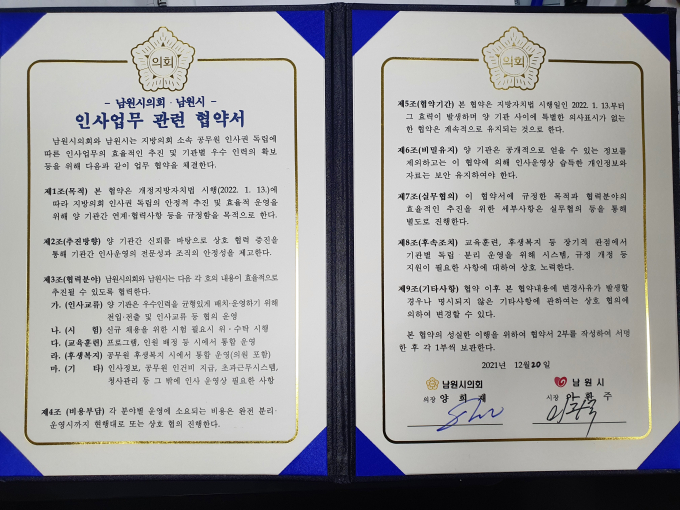 의회
- 남원시의회 · 남원시 -
인사업무 관련 협약서
남원시의회와 남원시는 지방의회 소속 공무원 인사권 독립에
따른 인사업무의 효율적인 추진 및 기관별 우수 인력의 확보
등을 위해 다음과 같이 업무 협약을 체결한다.
제1조(목적) 본 협약은 개정지방자치법 시행(2022. 1. 13.)에
따라 지방의회 인사권 독립의 안정적 추진 및 효율적 운영을
위해 양 기관간 연계·협력사항 등을 규정함을 목적으로 한다.
제2조(추진방향) 양 기관간 신뢰를 바탕으로 상호 협력 증진을
통해 기관간 인사운영의 전문성과 조직의 안정성을 제고한다.
제3조(협력분야) 남원시의회와 남원시는 다음 각 호의 내용이 효율적으로
추진될 수 있도록 협력한다.
가. (인사교류) 양 기관은 우수인력을 균형있게 배치·운영하기 위해
전입·전출 및 인사교류 등 협의 운영
나. (시 험) 신규 채용을 위한 시험 필요시 위·수탁 시행
다. (교육훈련) 프로그램, 인원 배정 등 시에서 통합 운영
라. (후생복지) 공무원 후생복지 시에서 통합 운영(의원 포함)
마. (기 타) 인사정보, 공무원 인건비 지급, 초과근무시스템,
청사관리 등 그 밖에 인사 운영상 필요한 사항
제4조 (비용부담) 각 분야별 운영에 소요되는 비용은 완전 분리·
운영시까지 현행대로 또는 상호 협의 진행한다.
의회
제5조(협약기간) 본 협약은 지방자치법 시행일인 2022. 1. 13.부터
그 효력이 발생하며 양 기관 사이에 특별한 의사표시가 없는
한 협약은 계속적으로 유지되는 것으로 한다.
제6조(비밀유지) 양 기관은 공개적으로 얻을 수 있는 정보를
제외하고는 이 협약에 의해 인사운영상 습득한 개인정보와
자료는 보안 유지하여야 한다.
제7조(실무협의) 이 협약서에 규정한 목적과 협력분야의
효율적인 추진을 위한 세부사항은 실무협의 등을 통해
별도로 진행한다.
제8조(후속조치) 교육훈련, 후생복지 등 장기적 관점에서
기관별 독립 분리 운영을 위해 시스템, 규정 개정 등
지원이 필요한 사항에 대하여 상호 노력한다.
제9조(기타사항) 협약 이후 본 협약내용에 변경사유가 발생할
경우나 명시되지 않은 기타사항에 관하여는 상호 협의에
의하여 변경할 수 있다.
본 협약의 성실한 이행을 위하여 협약서 2부를 작성하여 서명
한 후 각 1부씩 보관한다.
2021년 12월 20일
남원시의회 남원시
의장 양희재 시장 이환주